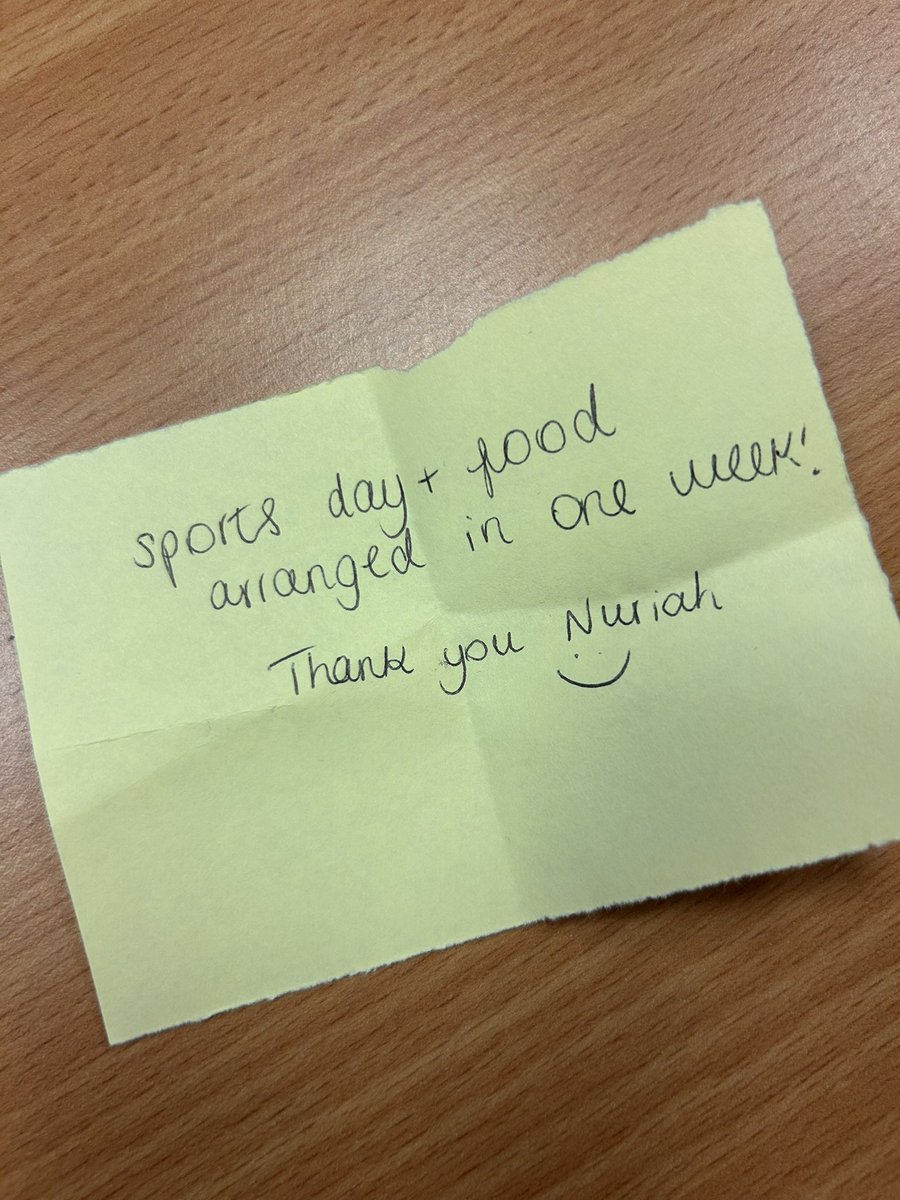 sports day + food
arranged in one week!
Thank you Nuriah